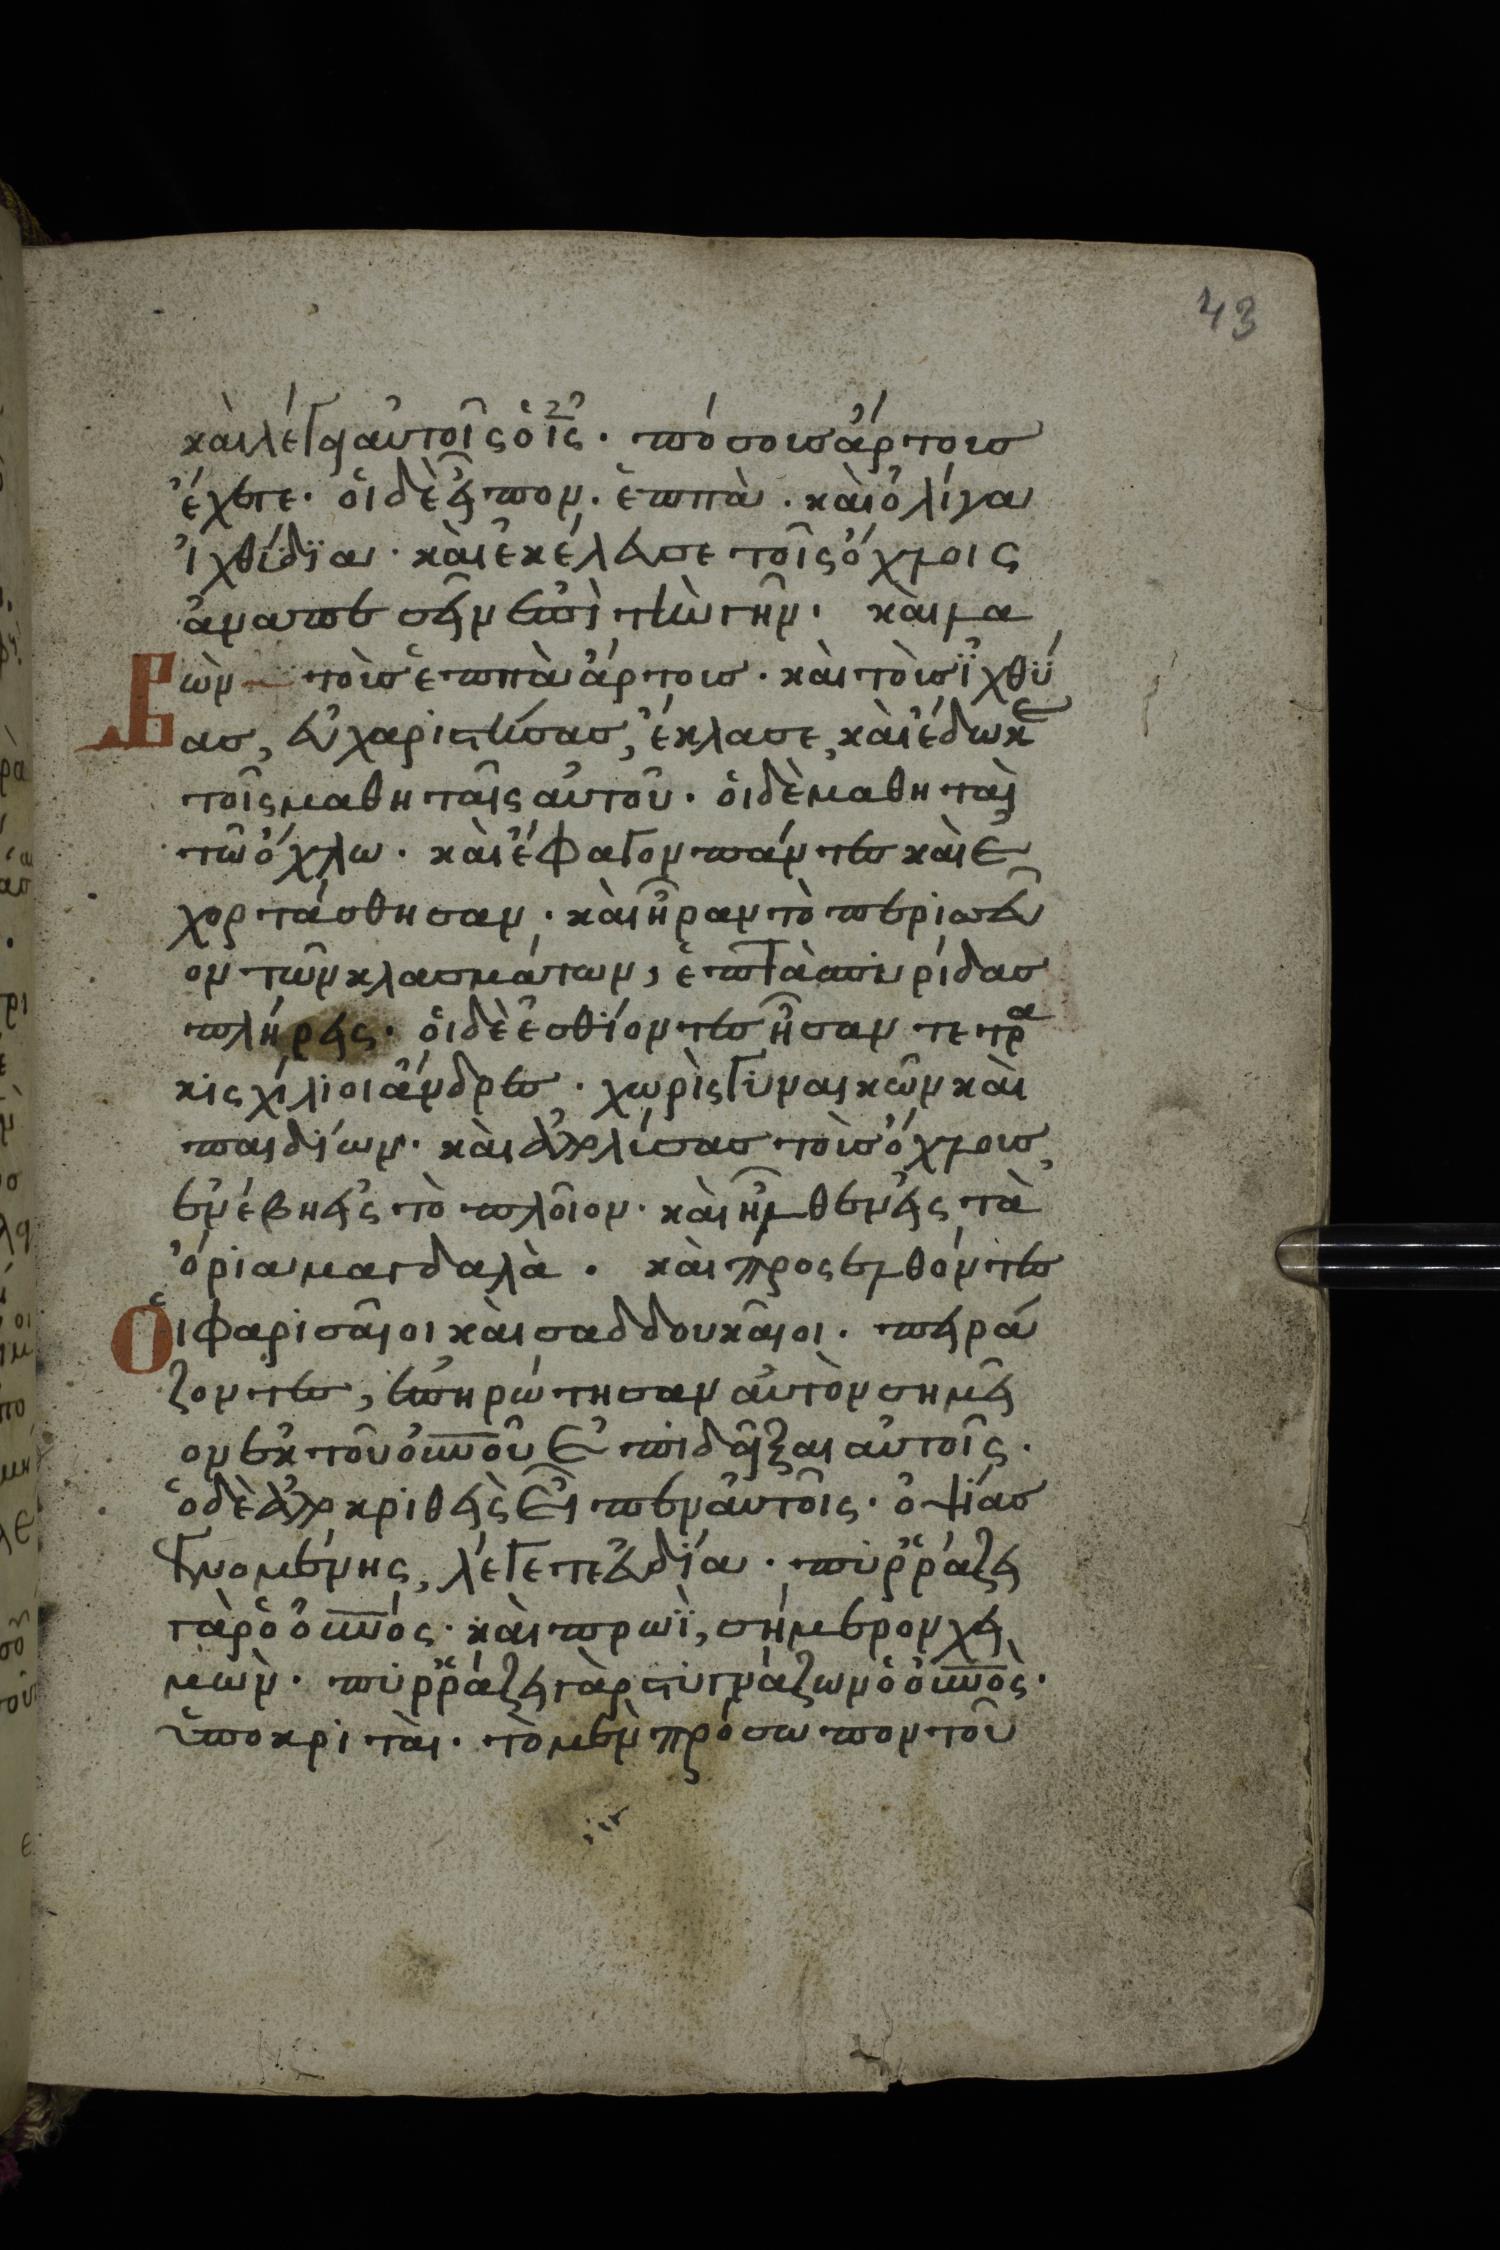 43
καὶ λέγει αὐτοῖς ὁ ις̅· πόσους ἄρτους
ἔχετε· οἱ δὲ εἶπον· ἑπτὰ· καὶ ὀλίγα
ἰχθίδϊα· καὶ ἐκέλευσε τοῖς ὄχλοις
ἀναπεσεῖν ἐπὶ τὴν γῆν· καὶ λα
βὼν τοὺς ἑπτὰ ἄρτους· καὶ τοὺς ϊχθύ
ας, εὐχαριστήσας, ἔκλασε, καὶ ἔδωκε
τοῖς μαθηταῖς αὐτοῦ· οἱ δὲ μαθηταὶ
τῶ ὄχλω· καὶ ἔφαγον πάντες καὶ ἐ
χορτάσθησαν· καὶ ἦραν τὸ περισσεῦ
ον τῶν κλασμάτων, ἑπτὰ σπυρίδας
πλήρεις· οἱ δὲ ἐσθΐοντες ἦσαν τετρα
κισχίλιοι ἄνδρες· χωρὶς γυναικῶν καὶ
παιδίων· καὶ ἀπολύσας τοὺς ὄχλους,
ἐνέβη εἰς τὸ πλοῖον· καὶ ἦλθεν εἰς τὰ
ὅρια μαγδαλὰ· καὶ προσελθόντες
Οἱ φαρισαῖοι καὶ σαδδουκαῖοι· πειρά
ζοντες, ἐπηρώτησαν αὐτὸν σημεῖ
ον ἐκ τοῦ ουνου̅ ἐπιδεῖξαι αὐτοῖς·
ὁ δὲ ἀποκριθεὶς εἶπεν αὐτοῖς· ὀψίας
γενομένης, λέγετε εὐδία· πυῤῥάζει
γὰρ ὁ ουνο̅ς· καὶ πρωῒ, σήμερον χει
μὼν· πυῤῥάζει γὰρ στυγνάζων ὁ ουνο̅ς·
ὑποκριταὶ· τὸ μὲν πρόσωπον τοῦ